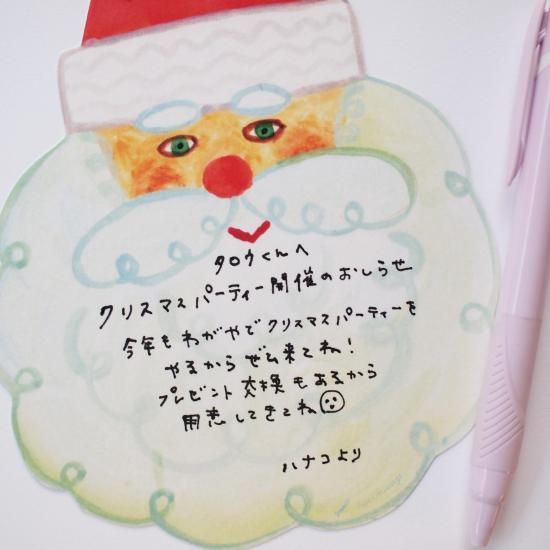 タロウくんへ
クリスマスパーティー開催のおしらせ
今年もわがやでクリスマスパーティーを
やるからぜひ来てね!
プレゼント交換もあるから
用意してきてね
ハナコより